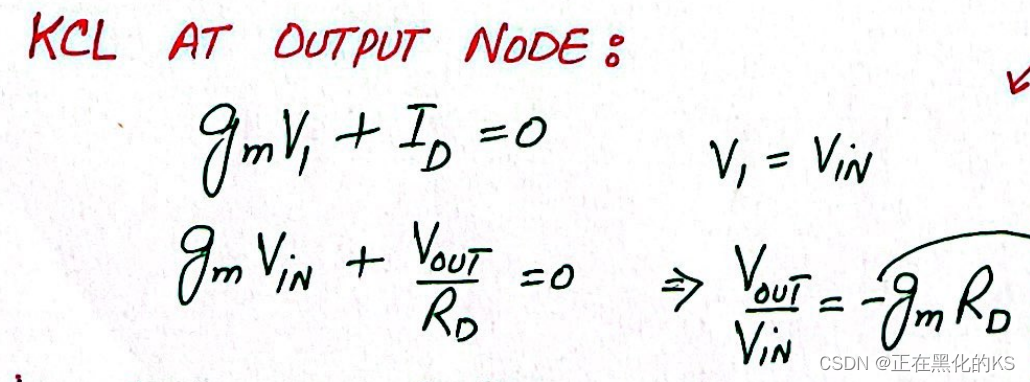 KCL AT OUTPUT NODE:
gmV1 + ID = 0
V1 = VIN
gm VIN + VOUT/RD = 0 ⇒ VOUT/VIN = -gm RD
CSDN @正在黑化的KS